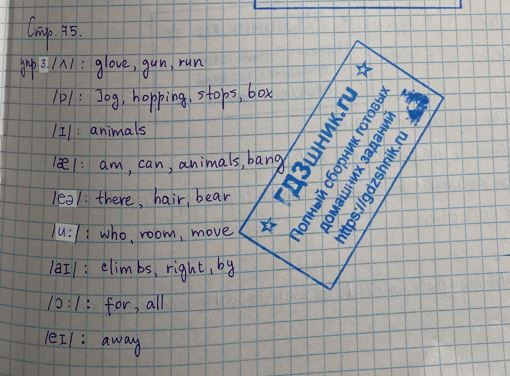 Стр. 75.
упр 3. /ʌ/: glove, gun, run
/ɒ/: Jog, hopping, stops, box
/ɪ/: animals
/æ/: am, can, animals, bang
/eə/: there, hair, bear
/u:/: who, room, move
/aɪ/: climbs, right, by
/ɔ:/: for, all
/eɪ/: away
ГДЗшник.ru
Полный сборник готовых
домашних заданий
https://gdzshnik.ru